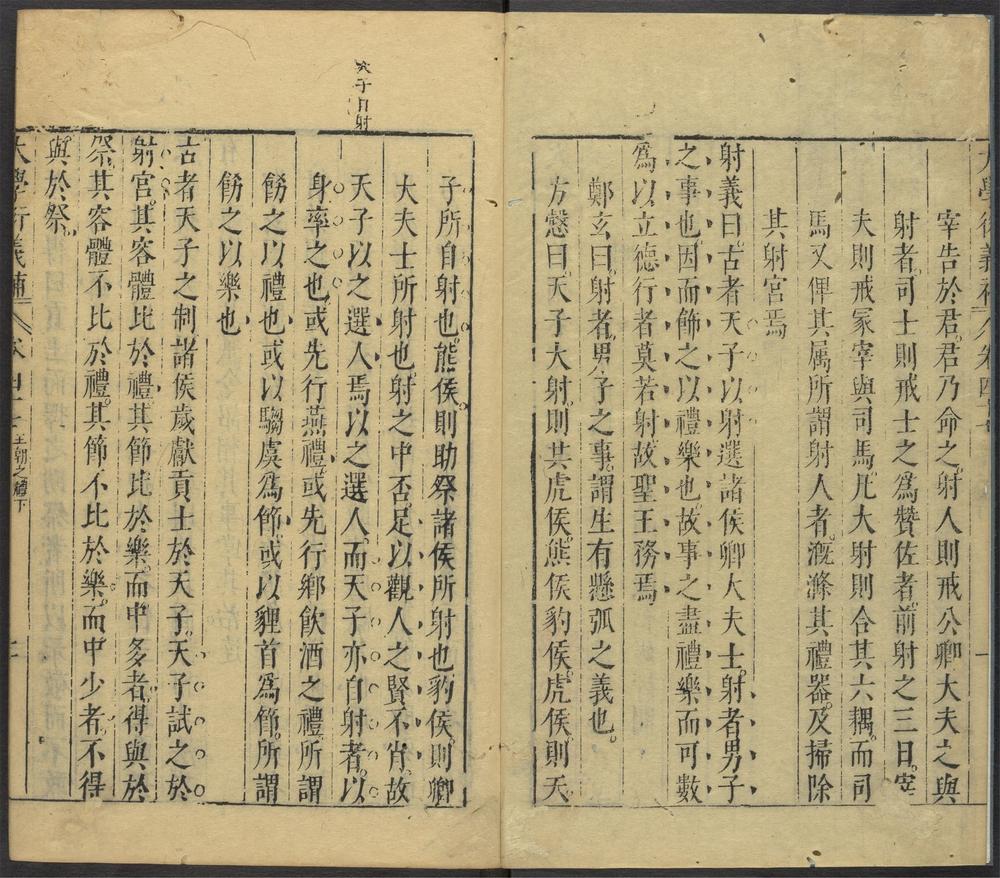 大學衍義補 卷四十七
宰告於君君乃命之射人則戒公卿大夫之與
射者司士則戒士之為贊佐者前射之三日宰
夫則戒冢宰與司馬凡大射則合其六耦而司
馬又俾其属所謂射人者溉滌其禮器及掃除
其射宮焉
射義曰古者天子以射選諸侯卿大夫士射者男子
之事也因而飾之以禮樂也故事之盡禮樂而可數
為以立德行者莫若射故聖王務焉
鄭玄曰射者男子之事謂生有懸弧之義也
方慤曰天子大射則共虎侯熊侯豹侯虎侯則天
天子自射
子所自射也熊侯則助祭諸侯所射也豹侯則卿
大夫士所射也射之中否足以觀人之賢不肖故
天子以之選人焉以之選人而天子亦自射者以
身率之也或先行燕禮或先行鄉飲酒之禮所謂
飭之以禮也或以騶虞為節或以貍首為節所謂
飭之以樂也
古者天子之制諸侯歲獻貢士於天子天子試之於
射宮其容體比於禮其節比於樂而中多者得與於
祭其容體不比於禮其節不比於樂而中少者不得
與於祭
大學衍義補 卷四十七 王朝之禮下